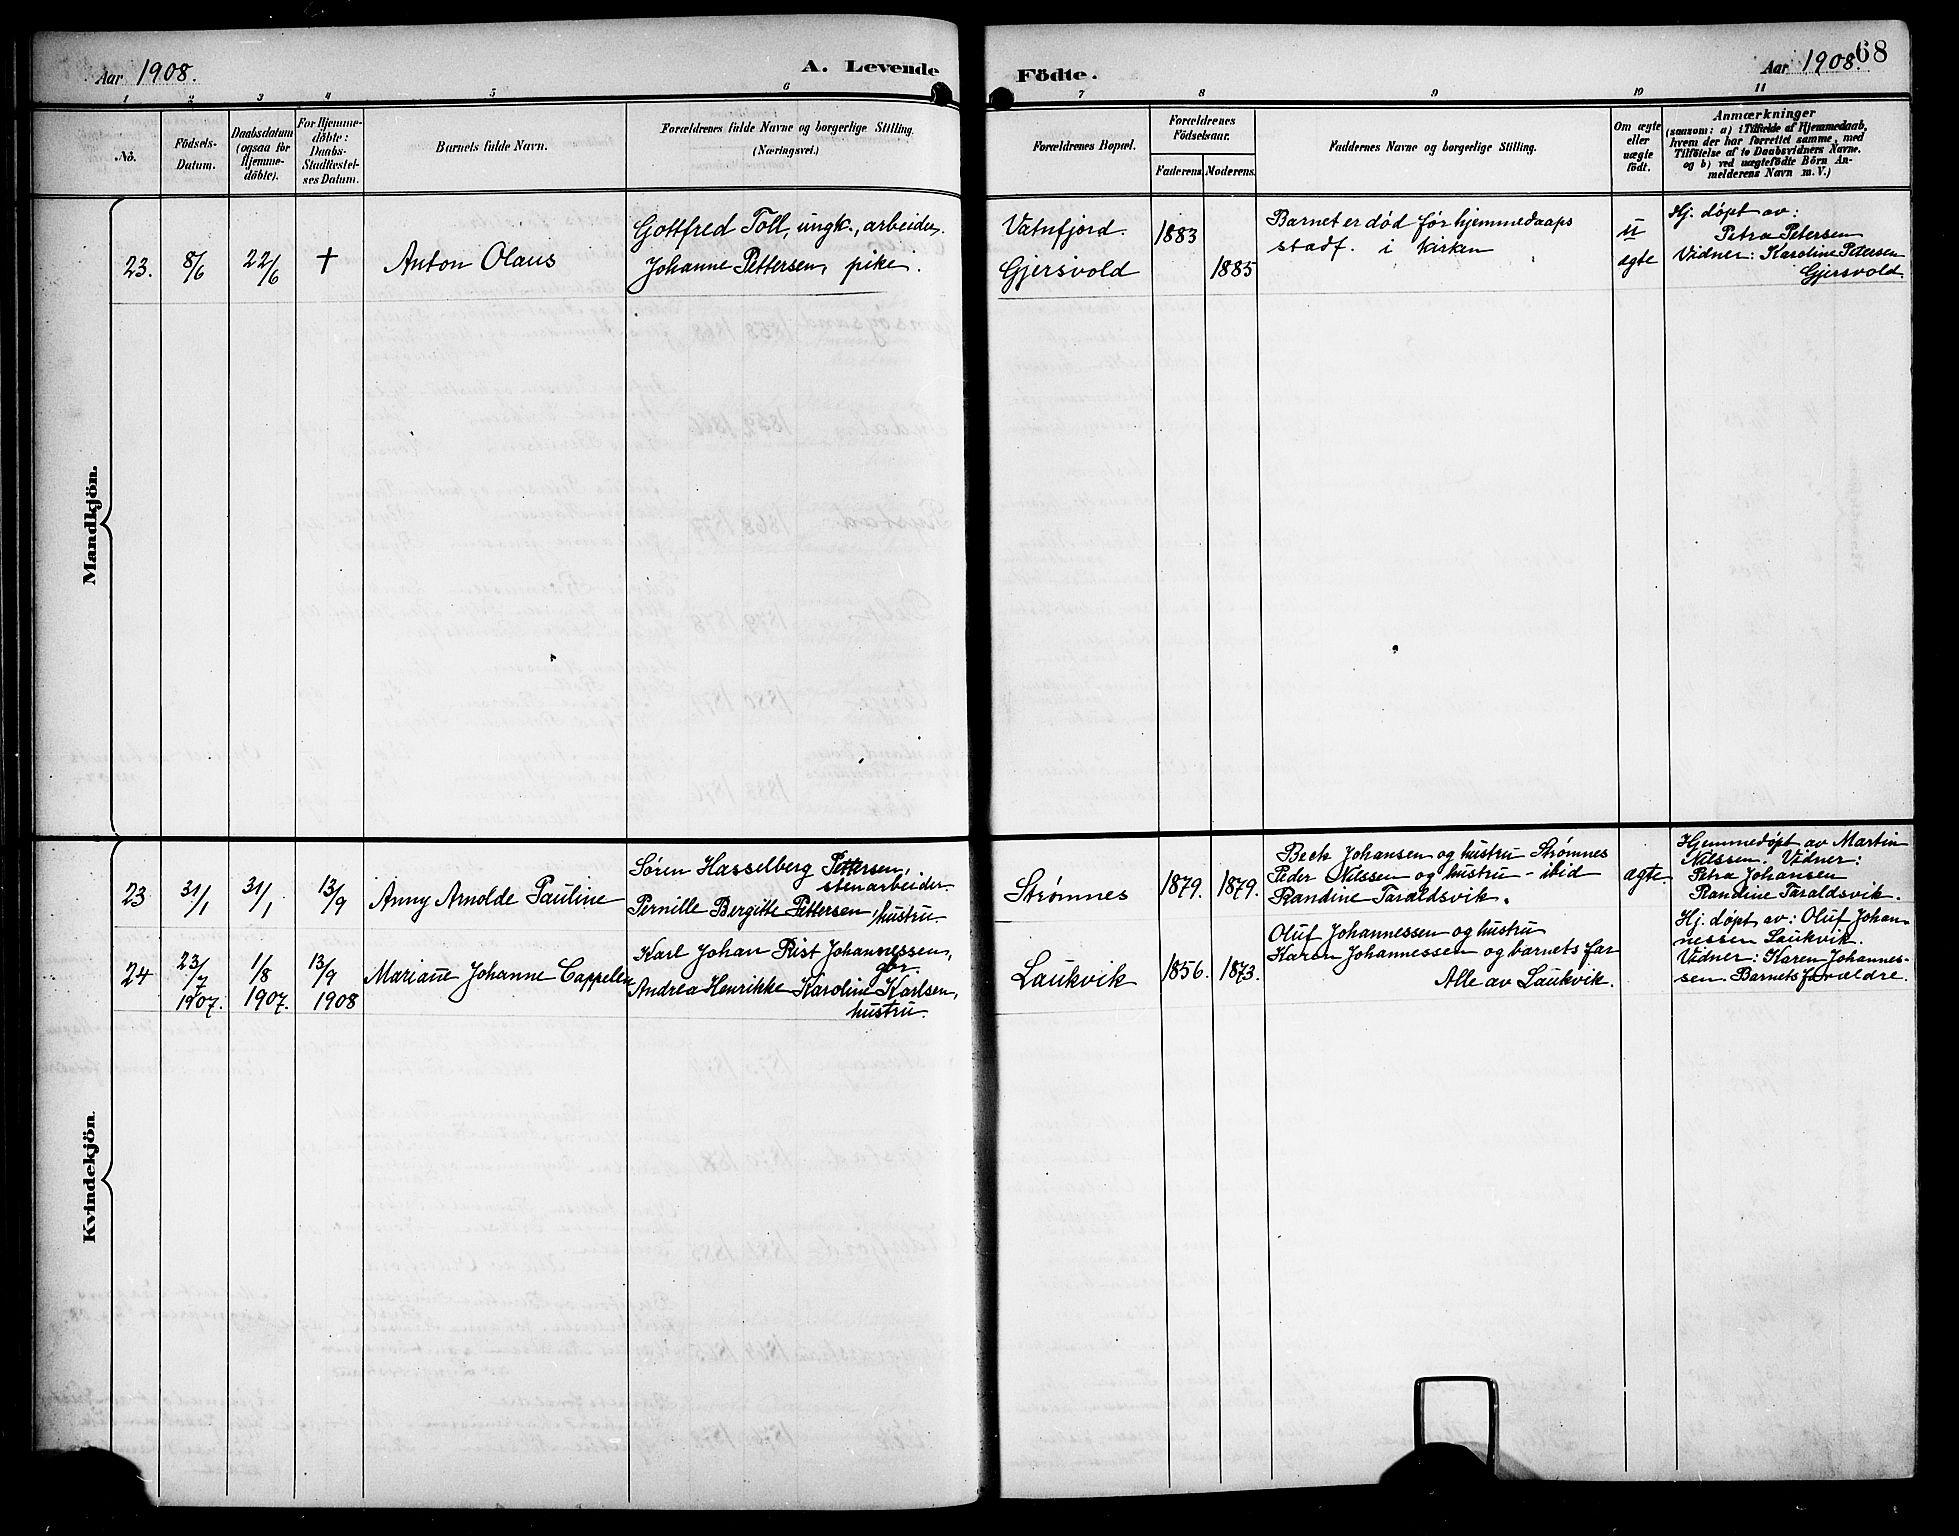 Aar 1908.
A. Levende
Födte.
Aar 1908.
68
1 2 3 4 5 6 7 8 9 10 11
No.
Födsels-
Datum.
Daabsdatum
(ogsaa för
Hjemme-
döbte).
For Hjemme-
döbte:
Daabs-
Stadfæstel-
ses Datum.
Barnets fulde Navn.
Forældrenes fulde Navne og borgerlige Stilling.
(Næringsvei.)
Forældrenes Bopæl.
Forældrenes
Födselsaar.
Faderens.
Moderens.
Faddernes Navne og borgerlige Stilling.
Om ægte
eller
uægte
födt.
Anmærkninger
(saasom: a) i Tilfælde af Hjemmedaab,
hvem der har forrettet samme, med
Tilföielse af to Daabsvidners Navne.
og b) ved uægtefödte Börn An-
melderens Navn m. V.)
Mandkjön.
23.
8/6
22/6
+
Anton Olaus
Gottfred Toll, ungk., arbeider.
Johanne Pettersen, pike.
Vatnfjord.
Gjersvold
1883
1885
Barnet er død før hjemmedaaps
stadf. i kirken
u
ægte
Hj. døpt av:
Petra Petersen
Vidner: Karoline Petersen
Gjersvold.
Kvindekjön.
23
31/1
31/1
13/9
Anny Arnolde Pauline
Søren Hasselberg Pettersen,
stenarbeider.
Pernille Bergitte Pettersen, hustru
Strømnes
1879.
1879.
Beck Johansen og hustru Strømnes
Peder Nilssen og hustru - ibid
Randine Taraldsvik.
ægte.
Hjemmedøpt av Martin
Nilssen. Vidner:
Petra Johansen
Randine Taraldsvik.
24
23/7
1907.
1/8
1907.
13/9
1908
Mariane Johanne Cappelen
Karl Johan Rist Johannessen,
Andrea Henrikke Karoline Karlsen,
hustru.
Laukvik
1856.
1873.
Oluf Johannessen og hustru
Karen Johannessen og barnets far
Alle av Laukvik.
Hj. døpt av: Oluf Johan-
nessen Laukvik.
Vidner: Karen Johannes-
sen. Barnets forældre.